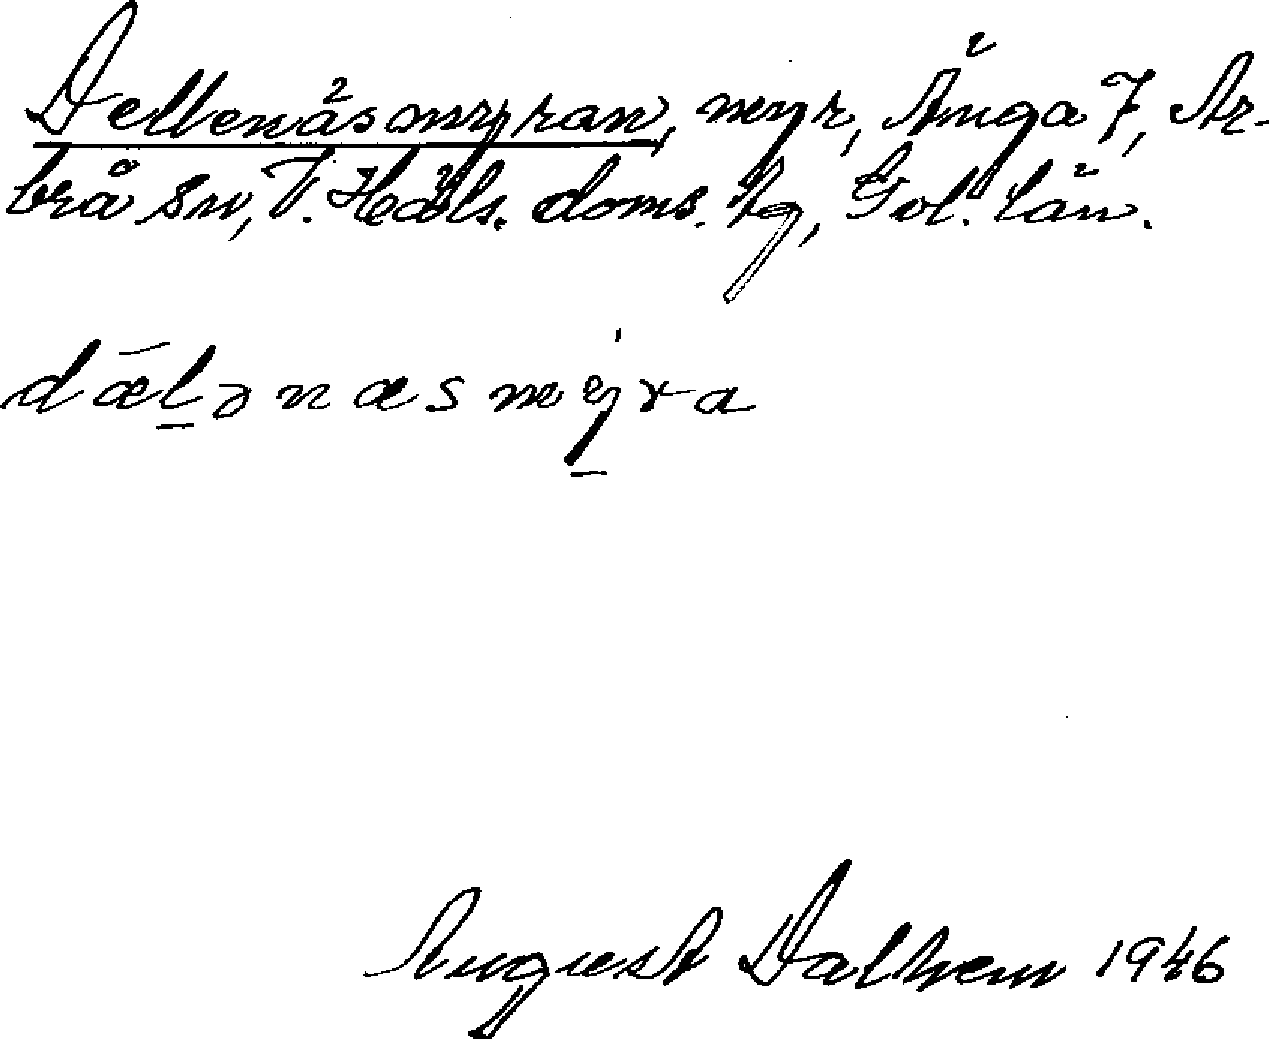 Dellenäsmyran, myr, Änga 7, Ar-
brå sn, V. Häls. doms. hg, Gvl. län.
dæl̲ənæsmy̲ra
August Dalhem 1946